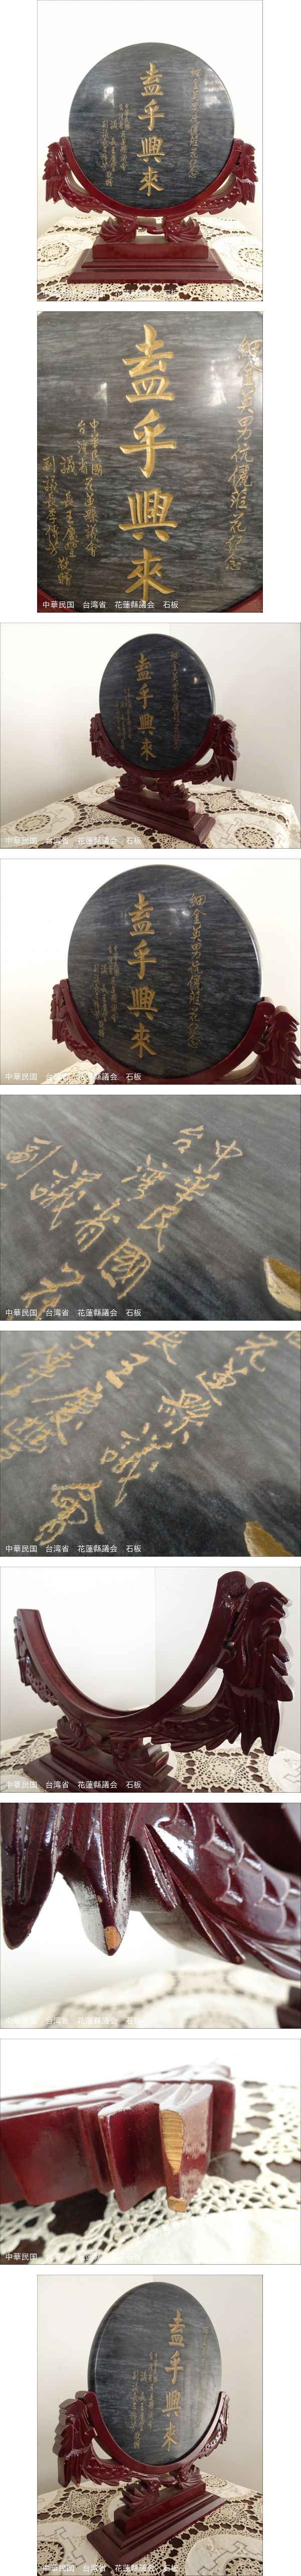 盍乎興來
細金英男伉儷蒞花紀念
中華民國
台灣省花蓮縣議會
議長王慶豐
副議長李 敬贈
中華民国 台湾省 花蓮縣議会 石板
中華民国 台湾省 花蓮縣議会 石板
中華民国 台湾省 花蓮縣議会 石板
中華民国 台湾省 花蓮縣議会 石板
中華民国 台湾省 花蓮縣議会 石板
中華民国 台湾省 花蓮縣議会 石板
中華民国 台湾省 花蓮縣議会 石板
中華民国 台湾省 花蓮縣議会 石板
中華民国 台湾省 花蓮縣議会 石板
中華民国 台湾省 花蓮縣議会 石板